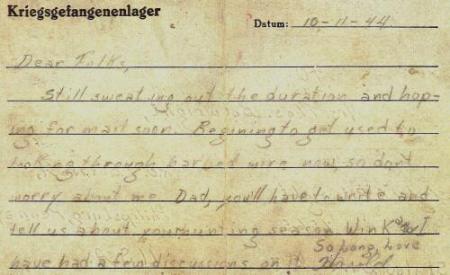 Kriegsgefangenenlager
Datum: 10-11-44
Dear Folks,
Still sweating out the duration and hop-
ing for mail soon. Begining to get used to
looking through barbed wire now, so dont
worry about me. Dad, you'll have to write and
tell us about your hunting season. Wink and I
have had a few discussions on it. So Long, Love
Harold